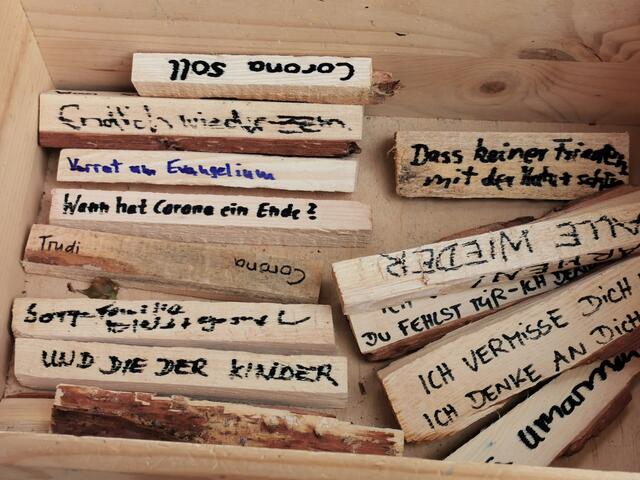 Corona soll
Endlich wieder
Verrat am Evangelium
Wann hat Corona ein Ende?
Trudi
Corona
UND DIE DER KINDER
Dass keiner Frieden
mit der Natur
ALLE WIEDER
ICH
DU FEHLST MIR - ICH DENK
ICH VERMISSE DICH
ICH DENKE AN DICH